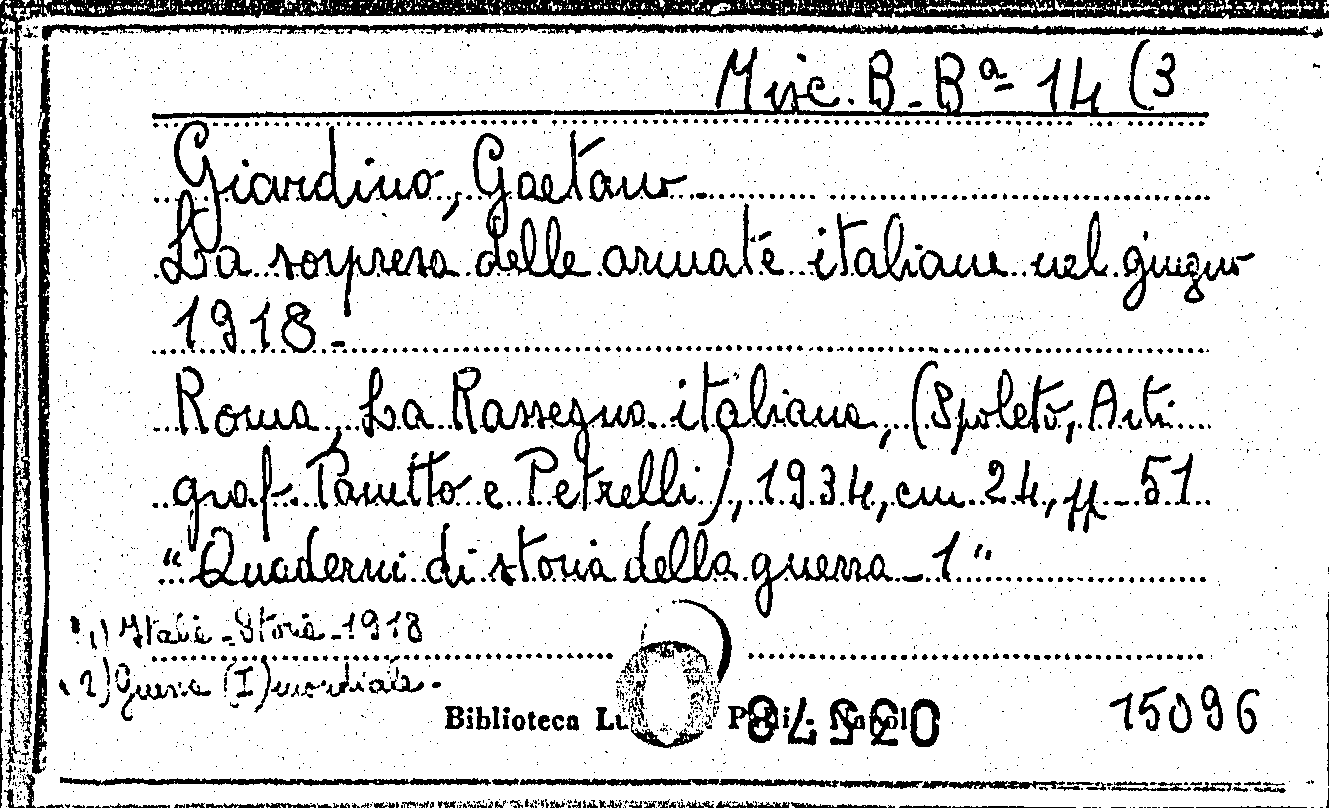 Misc. B. Bª 14 (3
Giardino, Gaetano -
La sorpresa delle armate italiane nel giugno
1918 -
Roma, La Rassegna italiana, (Spoleto, Arti
graf. Panetto e Petrelli), 1934, cm 24, pp 51
"Quaderni di storia della guerra - 1"
1) Italia - Storia - 1918
2) Guerra (I) mondiale -
Biblioteca Lu P Napol
15096